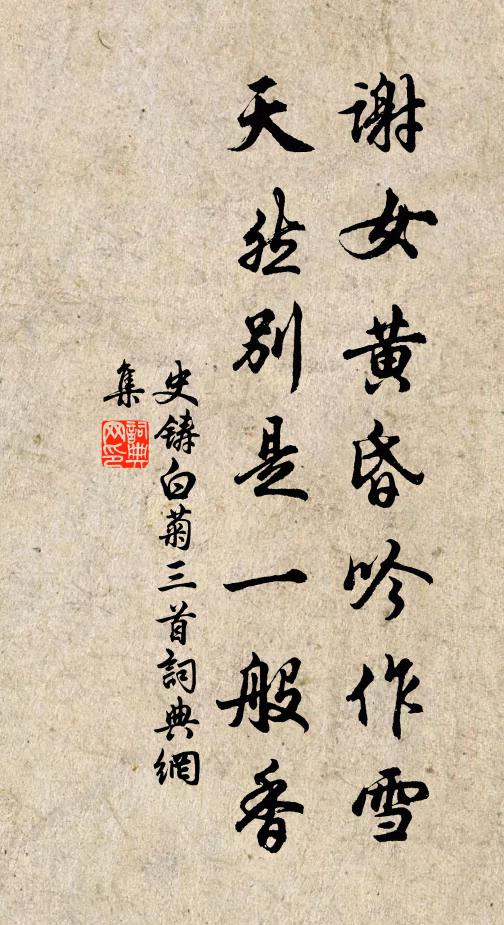 谢女黄昏吟作雪
天然别是一般香
史鑄白菊三首詞典網
集
詞典网印